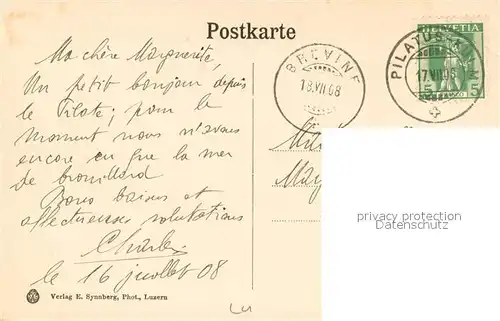 Postkarte
Ma chère Marguerite,
Un petit bonjour depuis
le Pilate; pour le
moment nous n'avons
encore eu que la mer
de brouillard
Bons baisers et
affectueuses salutations
Charles
le 16 juillet 08
Verlag E. Synnberg, Phot., Luzern
BREVINE
18.VII 08
PILATUS-KULM
17.VII.08
HELVETIA
5 5
privacy protection
AK-Ansichtskarten.de